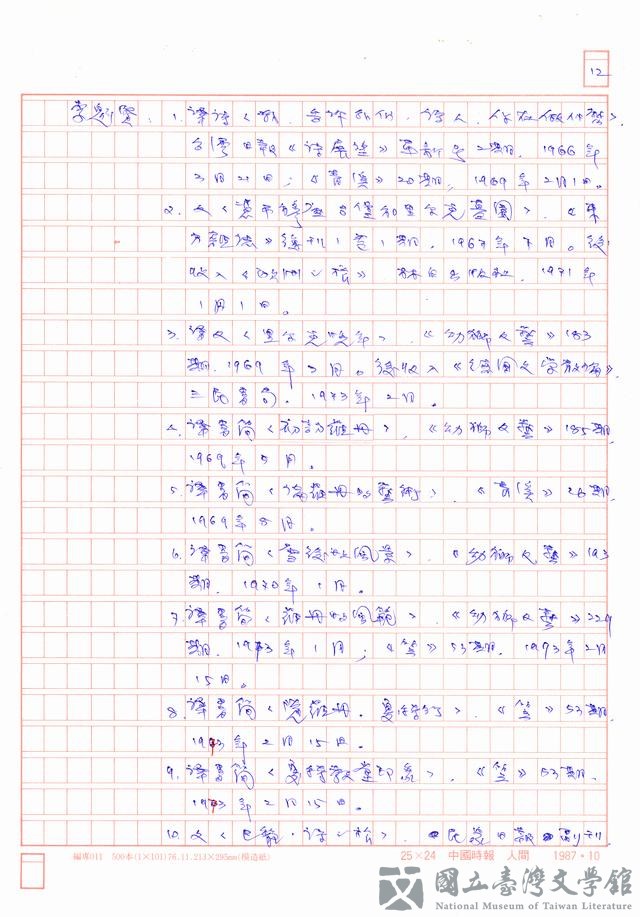 12
李魁賢：1.譯詩〈啊，告訴我們，詩人，你在做什麼〉
台灣日報《詩展望》革新号2期，1966年
3月21日；《青溪》20期，1969年2月1日。
2.文〈慕尼 堡和里尔克墓園〉，《東
方雜誌》復刊1卷1期，1967年7月。後
收入《欧洲之旅》林白出版社，1971年
1月1日。
3.譯文〈里尔克晚年〉，《幼獅文藝》183
期，1969年3月。後收入《德国文学散論》
三民書局，1973年2月。
4.譯書簡〈初訪羅丹〉，《幼獅文藝》185期，
1969年5月。
5.譯書簡〈論羅丹的藝術〉，《青溪》26期，
1969年8月。
6.譯書簡〈雪後的風景〉，《幼獅文藝》193
期，1970年1月。
7.譯書簡〈羅丹的風範〉，《幼獅文藝》229
期，1973年1月；《笠》53期，1973年2月
15日。
8.譯書簡〈隨羅丹，夏特行〉，《笠》53期，
1973年2月15日。
9.譯書簡〈夏特教堂印象〉，《笠》53期，
1973年2月15日。
10.文〈巴黎，詩之旅〉，民義日報副刊，
編専011 500本(1×101)76.11.213×295mm(模造紙) 25×24 中國時報 人間 1987·10
國立臺灣文學館
National Museum of Taiwan Literature